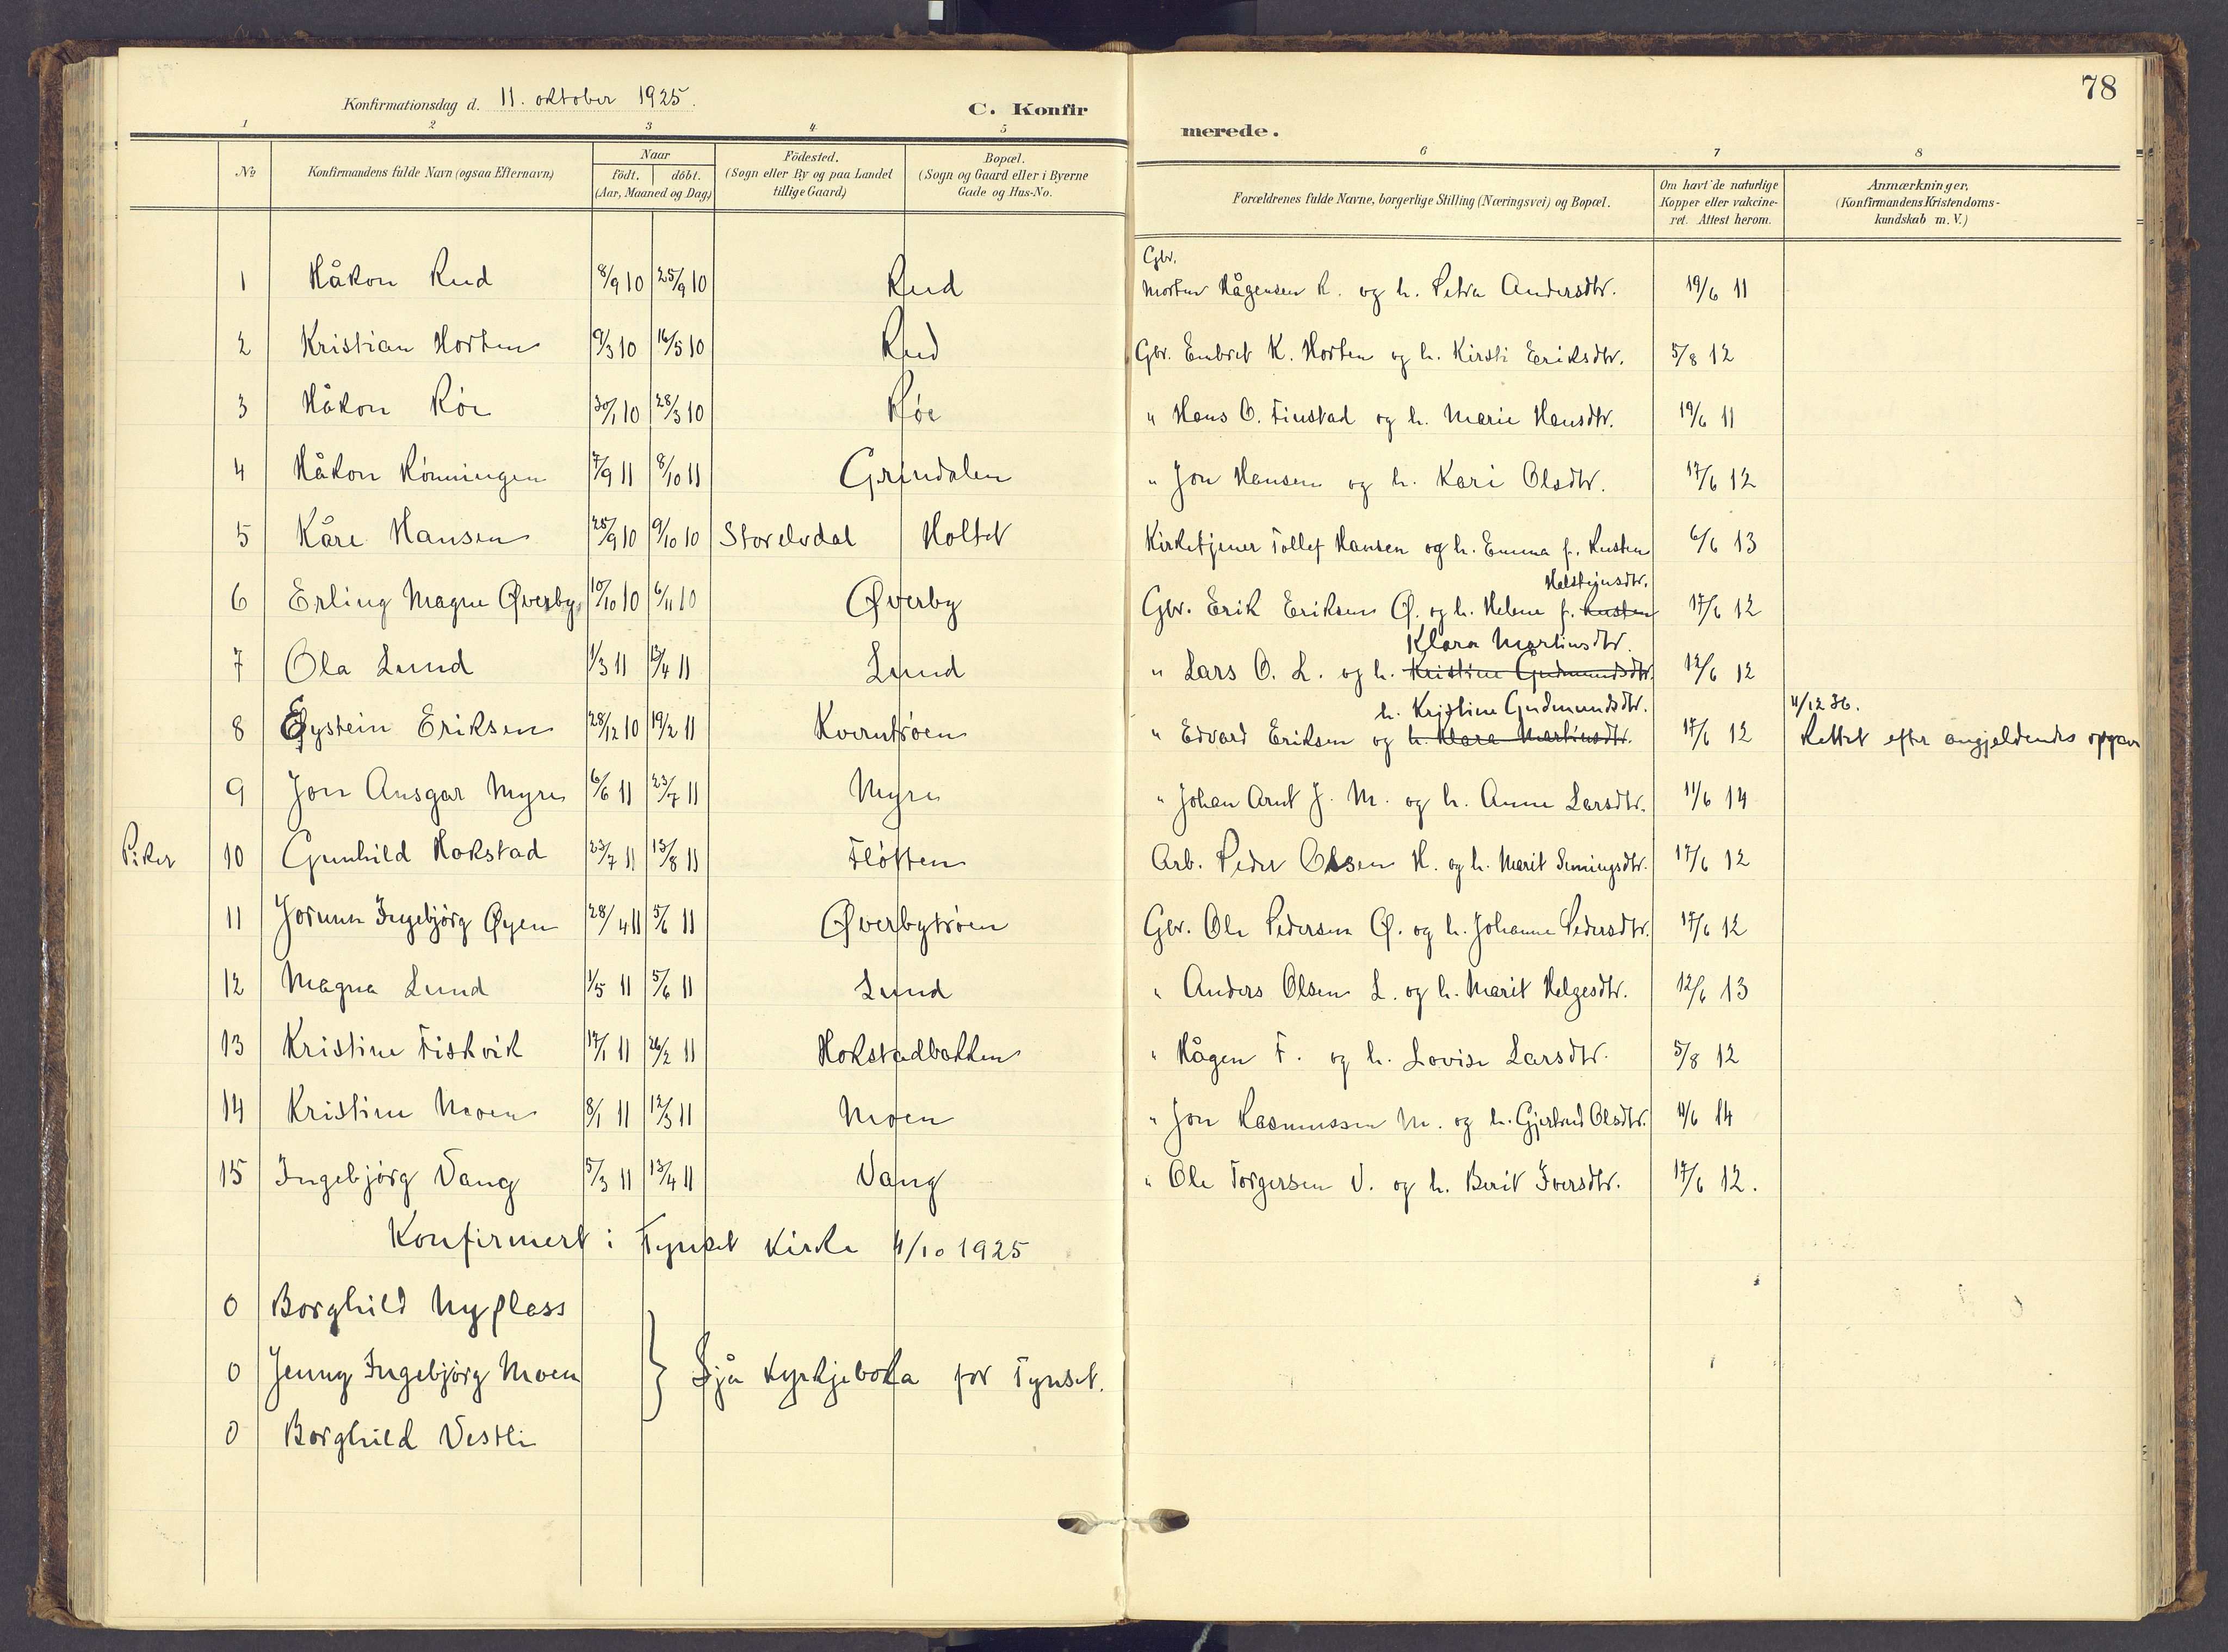 78
Konfirmationsdag d. 11. oktober 1925.
C. Konfirmerede.
1 2 3 4 5 6 7 8
No Konfirmandens fulde Navn (ogsaa Efternavn) Naar födt. döbt. (Aar, Maaned og Dag) Födested. (Sogn eller By og paa Landet tillige Gaard) Bopæl. (Sogn og Gaard eller i Byerne Gade og Hus-No. Forældrenes fulde Navne, borgerlige Stilling (Næringsvei) og Bopæl. Om havt de naturlige Kopper eller vakcineret. Attest herom. Anmærkninger. (Konfirmandens Kristendomskundskab m. V.)
1 Håkon Rud 8/9 10 25/9 10 Rud Gbr. Morten Hågensen R. og h. Petra Andersdtr. 19/6 11
2 Kristian Horten 9/3 10 16/5 10 Rud Gbr. Embret K. Horten og h. Kirsti Eriksdtr. 5/8 12
3 Håkon Røe 30/1 10 28/3 10 Røe " Hans O. Finstad og h. Marie Hansdtr. 19/6 11
4 Håkon Rønningen 7/9 11 8/10 11 Grindalen " Jon Hansen og h. Kari Olsdtr. 17/6 12
5 Kåre Hansen 25/9 10 9/10 10 Storelvdal Holtet Kirketjener Tollef Hansen og h. Emma f. Rusten 6/6 13
6 Erling Magne Øverby 10/10 10 6/11 10 Øverby Gbr. Erik Eriksen Ø. og h. Helene f. Rusten Halstensdtr. 17/6 12
7 Ola Lund 1/3 11 13/4 11 Lund " Lars O. L. og h. Kristine Gudmundsdtr. Klara Martinsdtr. 12/6 12
8 Øystein Eriksen 28/12 10 19/2 11 Kverntrøen " Edvard Eriksen og h. Klara Martinsdtr. h. Kristine Gudmundsdtr. 17/6 12 4/12 36. Rettet efter angjeldendes opgave
9 Jon Ansgar Myre 6/6 11 23/7 11 Myre " Johan Arnt J. M. og h. Anne Larsdtr. 11/6 14
Piker 10 Gunhild Hokstad 23/7 11 13/8 11 Fløtten Arb. Peder Olsen H. og h. Marit 17/6 12
11 Jorunn Ingebjørg Øyen 28/4 11 5/6 11 Øverbytrøen Gbr. Ole Pedersen Ø. og h. Johanne Pedersdtr. 17/6 12
12 Magna Lund 1/5 11 5/6 11 Lund " Anders Olsen L. og h. Marit Helgesdtr. 12/6 13
13 Kristine Fiskvik 17/1 11 26/2 11 Hokstadbakken " Hågen F. og h. Lovise Larsdtr. 5/8 12
14 Kristine Moen 8/1 11 12/3 11 Moen " Jon Rasmussen M. og h. Gjertrud Olsdtr. 11/6 14
15 Ingebjørg Vang 5/3 11 13/4 11 Vang " Ole Torgersen V. og h. Berit Iversdtr. 17/6 12.
Konfirmert i Tynset kirke 4/10 1925
0 Borghild Nyplass
0 Jenny Ingebjørg Moen } Sjå kyrkjeboka for Tynset.
0 Borghild Vestli